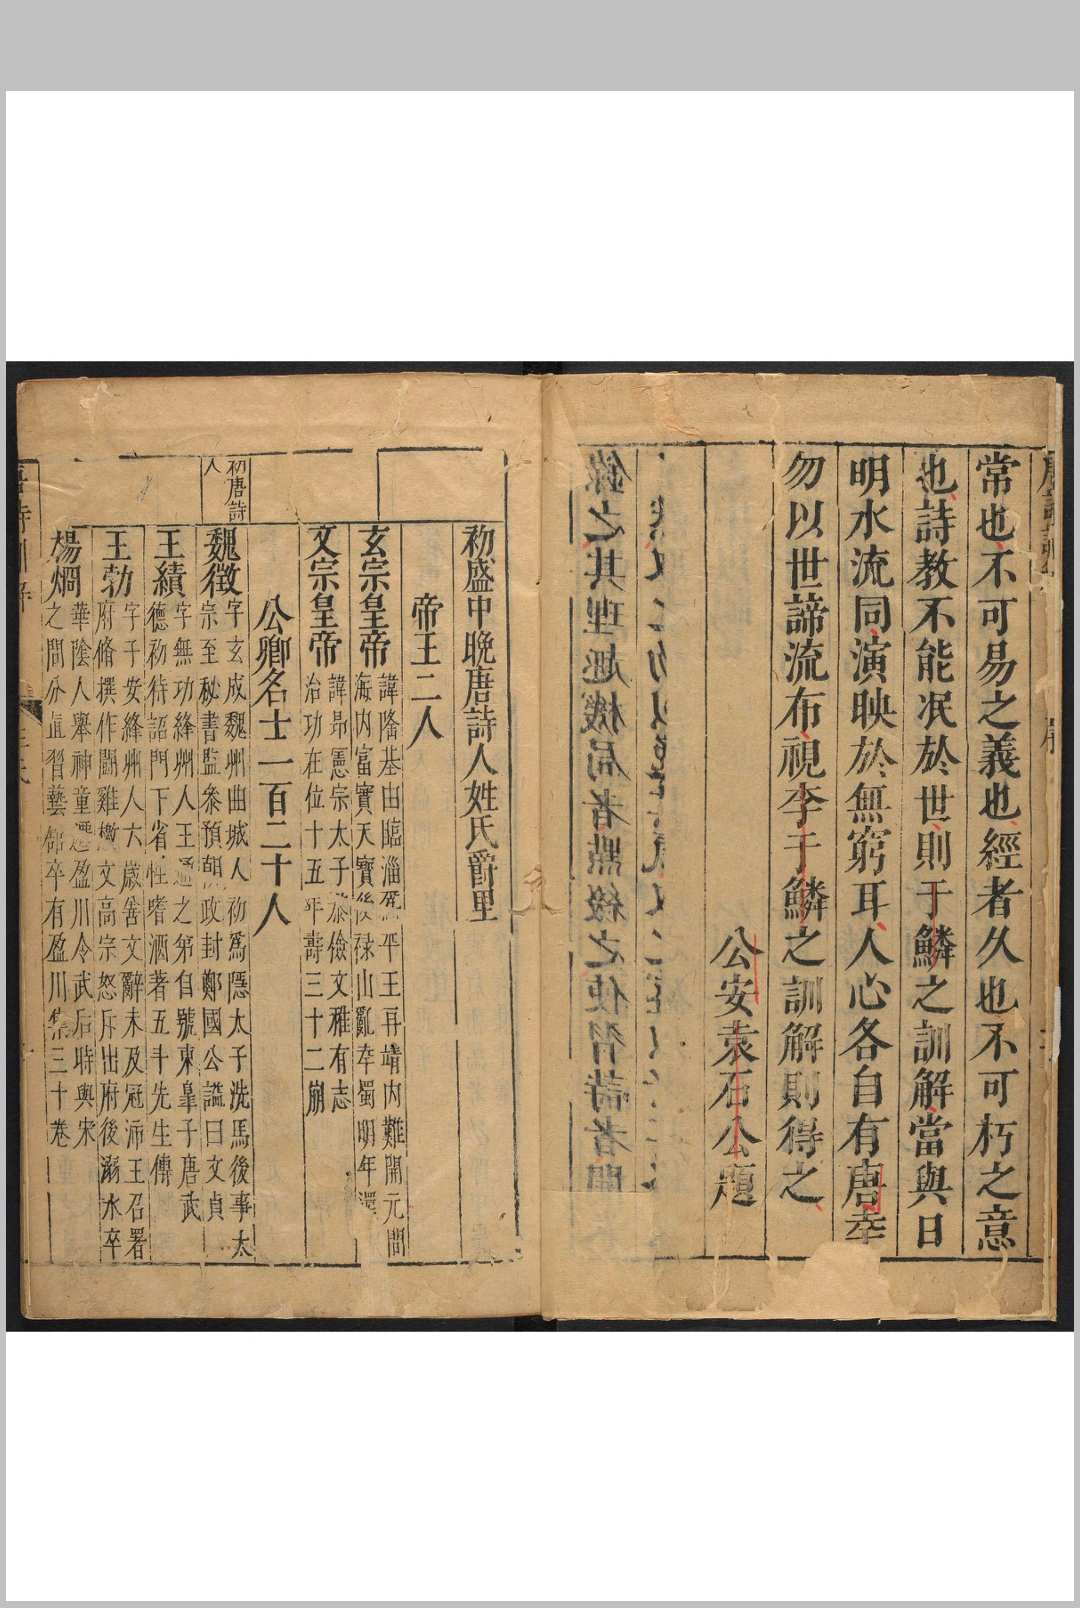 常也不可易之義也經者久也不可朽之意
也詩教不能泯於世則于鱗之訓解當與日
明水流同演映於無窮耳人心各自有唐幸
勿以世諦流布視李于鱗之訓解則得之
公安袁石公題
初盛中晚唐詩人姓氏爵里
帝王二人
玄宗皇帝
諱隆基由臨淄
平王再靖內難開元間
海內富實天寶後祿山亂幸蜀明年還
文宗皇帝
諱昂憲宗太子恭儉文雅有志
治功在位十五年壽三十二崩
公卿名士一百二十人
初唐詩
人
魏徵
字玄成魏州曲城人初爲隱太子洗馬後事太
宗至秘書監參預朝政封鄭國公謚曰文貞
王績
字無功絳州人王通之弟自號東皐子唐武
德初待詔門下省性嗜酒著五斗先生傳
王勃
字子安絳州人六歲善文辭未及冠沛王召署
府脩撰作鬪雞檄文高宗怒斥出府後溺水卒
楊烱
華陰人舉神童遷盈川令武后時與宋
之問分直習藝館卒有盈川集三十卷